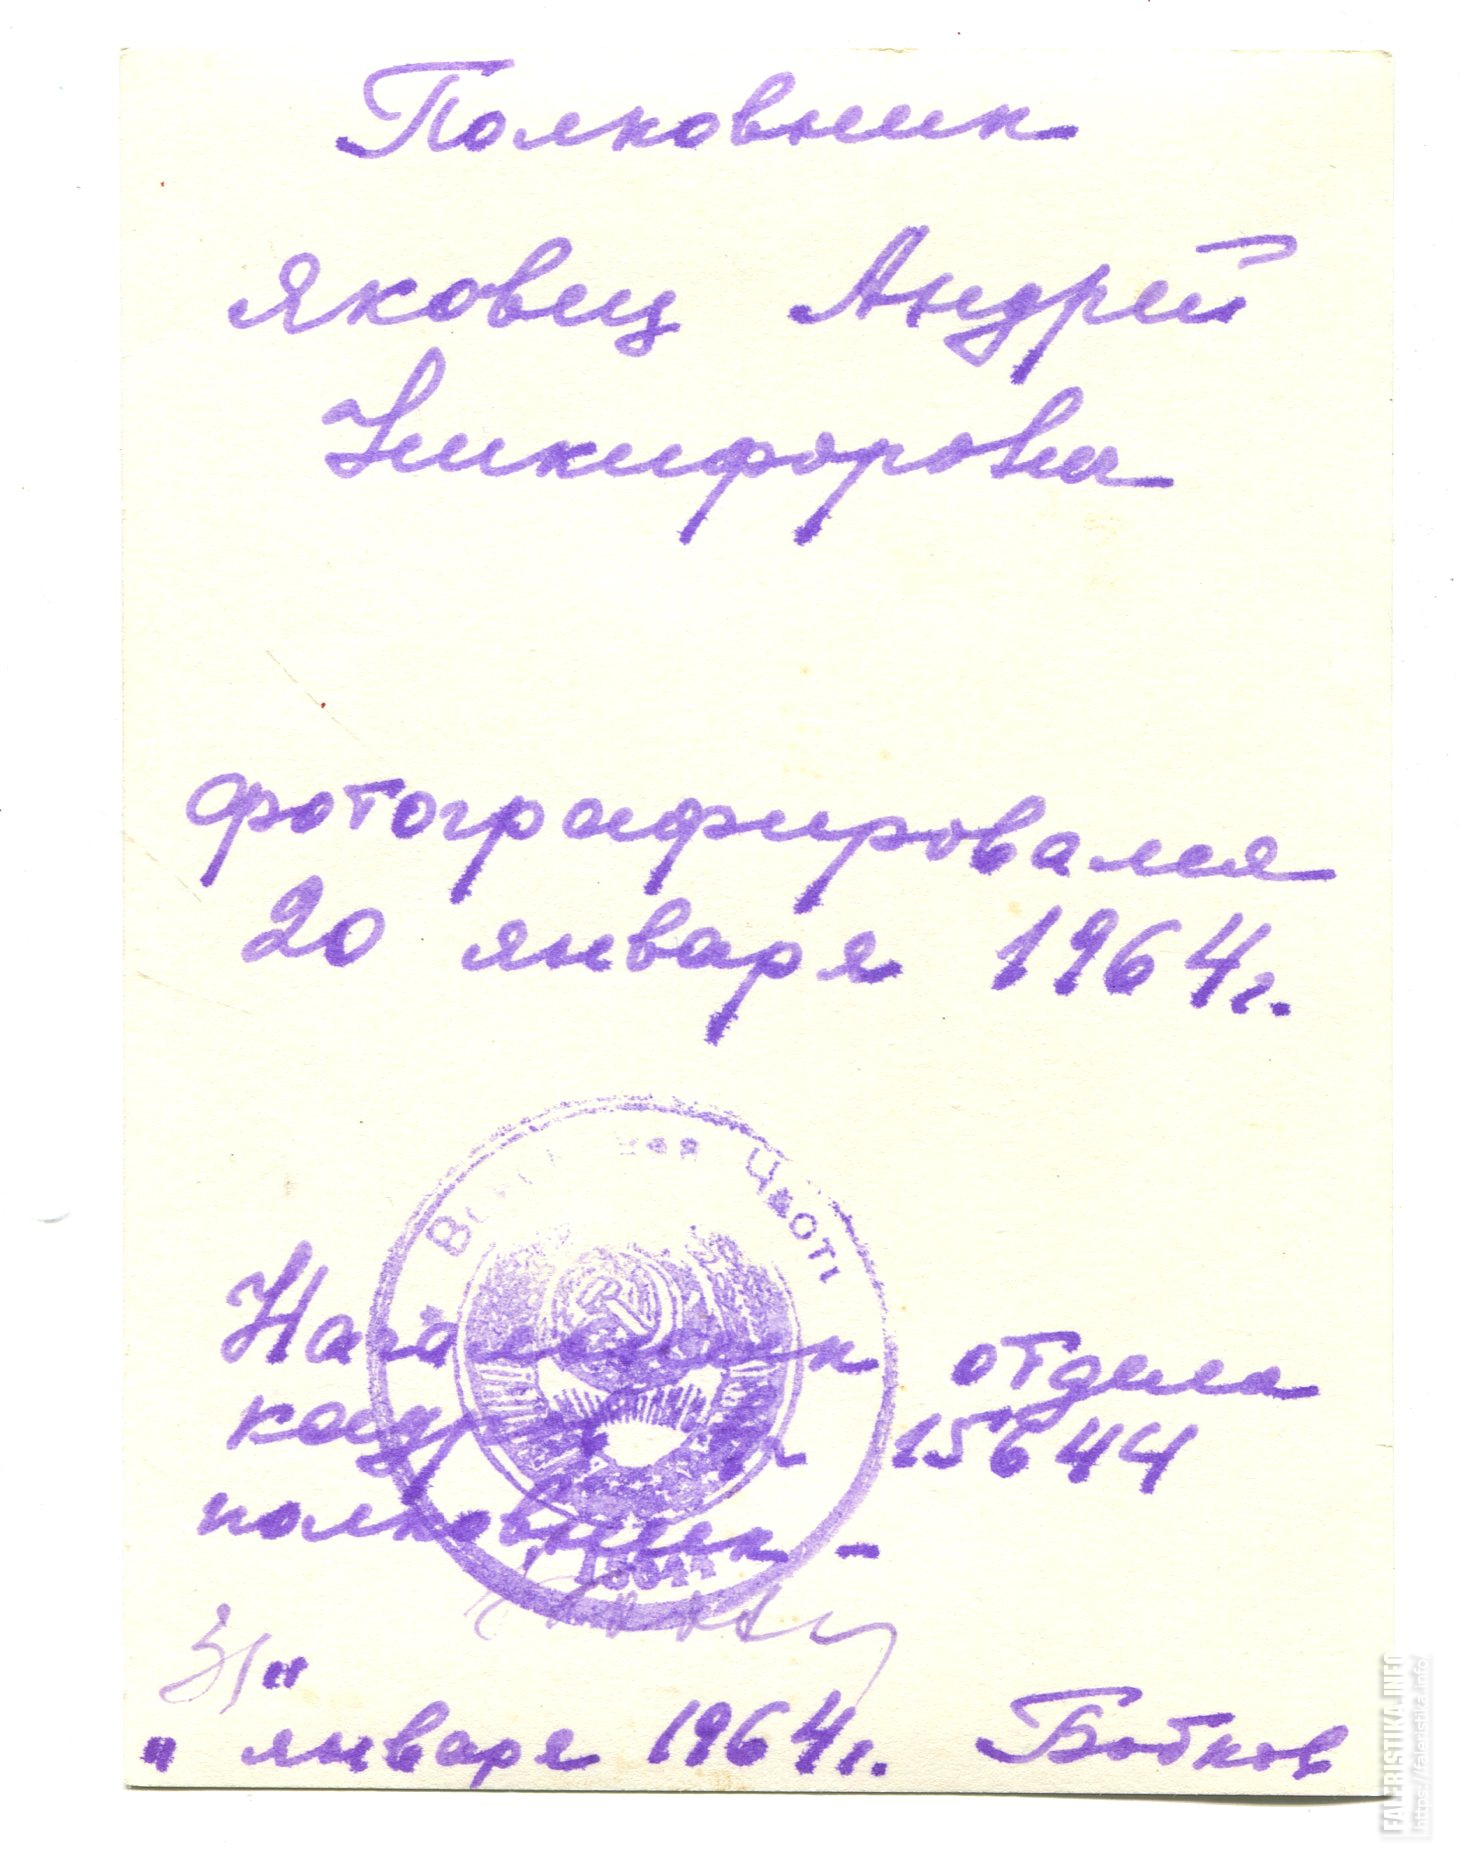 Полковник
Яковец Андрей
Никифорович
фотографировался
20 января 1964г.
Войсковая Часть
Начальник отдела
кадров в/ч 15644
полковник -
15644
31"
" января 1964г. Бобков
FALERISTIKA.INFO
https://faleristika.info/